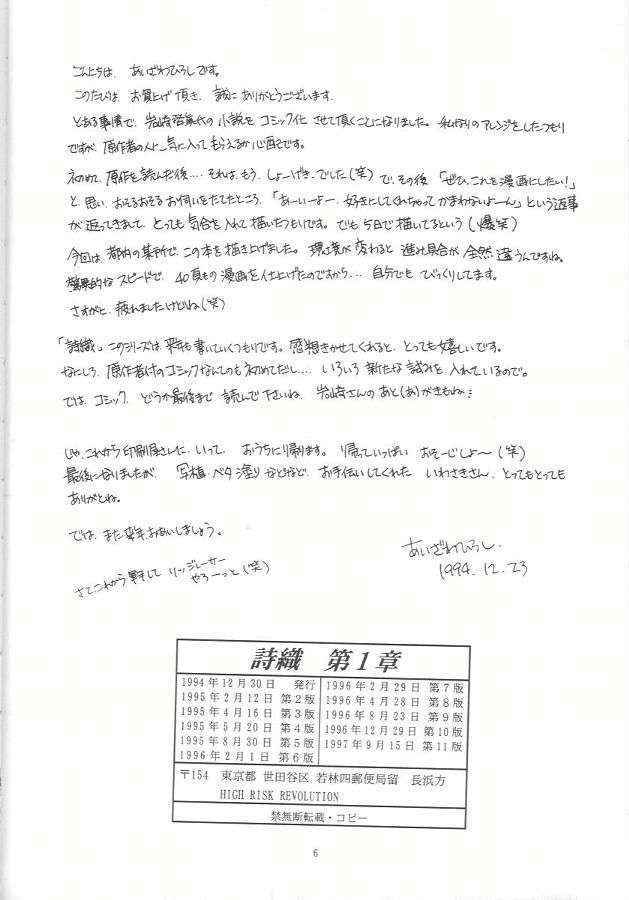 こんにちは、あいざわひろしです。
このたびは、お買上げ頂き、誠にありがとうございます。
とある事情で、岩崎啓眞代の小説をコミック化させて頂くことになりました。私なりのアレンジをしたつもり
ですが、原作者の人に気に入ってもらえるか心配です。
初めて、原作を読んだ後…それは、もう、しょーげき、でした(笑)で、その後「ぜひ、これを漫画にしたい！」
と思い、おそるおそるお伺いをたてたところ、「あーいーよー、好きにしてくれちゃってかまわないよーん」という返事
が返ってきまして、とっても気合を入れて描いたつもりです。でも5日で描いてるという(爆笑)
今回は、都内の某所で、この本を描き上げました。環境が変わると進み具合が全然違うんですね。
驚異的なスピードで、40頁もの漫画を仕上げたのですから…自分でもびっくりしてます。
さすがに、疲れましたけどね(笑)
「詩織」このシリーズは、来年も書いていくつもりです。感想きかせてくれると、とっても嬉しいです。
なにしろ、原作者付のコミックなんてのも初めてだし…いろいろ新たな試みを入れているので。
では、コミック、どうか最後まで読んで下さいね、岩崎さんのあと(あ)がきもね…
じゃ、これから印刷屋さんに、いって、おうちに帰ります。帰っていっぱいおそーじしよ～(笑)
最後になりましたが、写植、ベタ塗りなどなど、お手伝いしてくれた、いわさきさん、とってもとっても
ありがとね。
では、また来年お会いしましょう。
さてこれから リッジレーサー
やろーっと(笑)
あいざわひろし
1994.12.23
詩織 第1章
1994年12月30日 発行
1995年2月12日 第2版
1995年4月16日 第3版
1995年5月20日 第4版
1995年8月30日 第5版
1996年2月1日 第6版
1996年2月29日 第7版
1996年4月28日 第8版
1996年8月23日 第9版
1996年12月29日 第10版
1997年9月15日 第11版
〒154 東京都 世田谷区 若林四郵便局留 長浜方
HIGH RISK REVOLUTION
禁無断転載・コピー
6